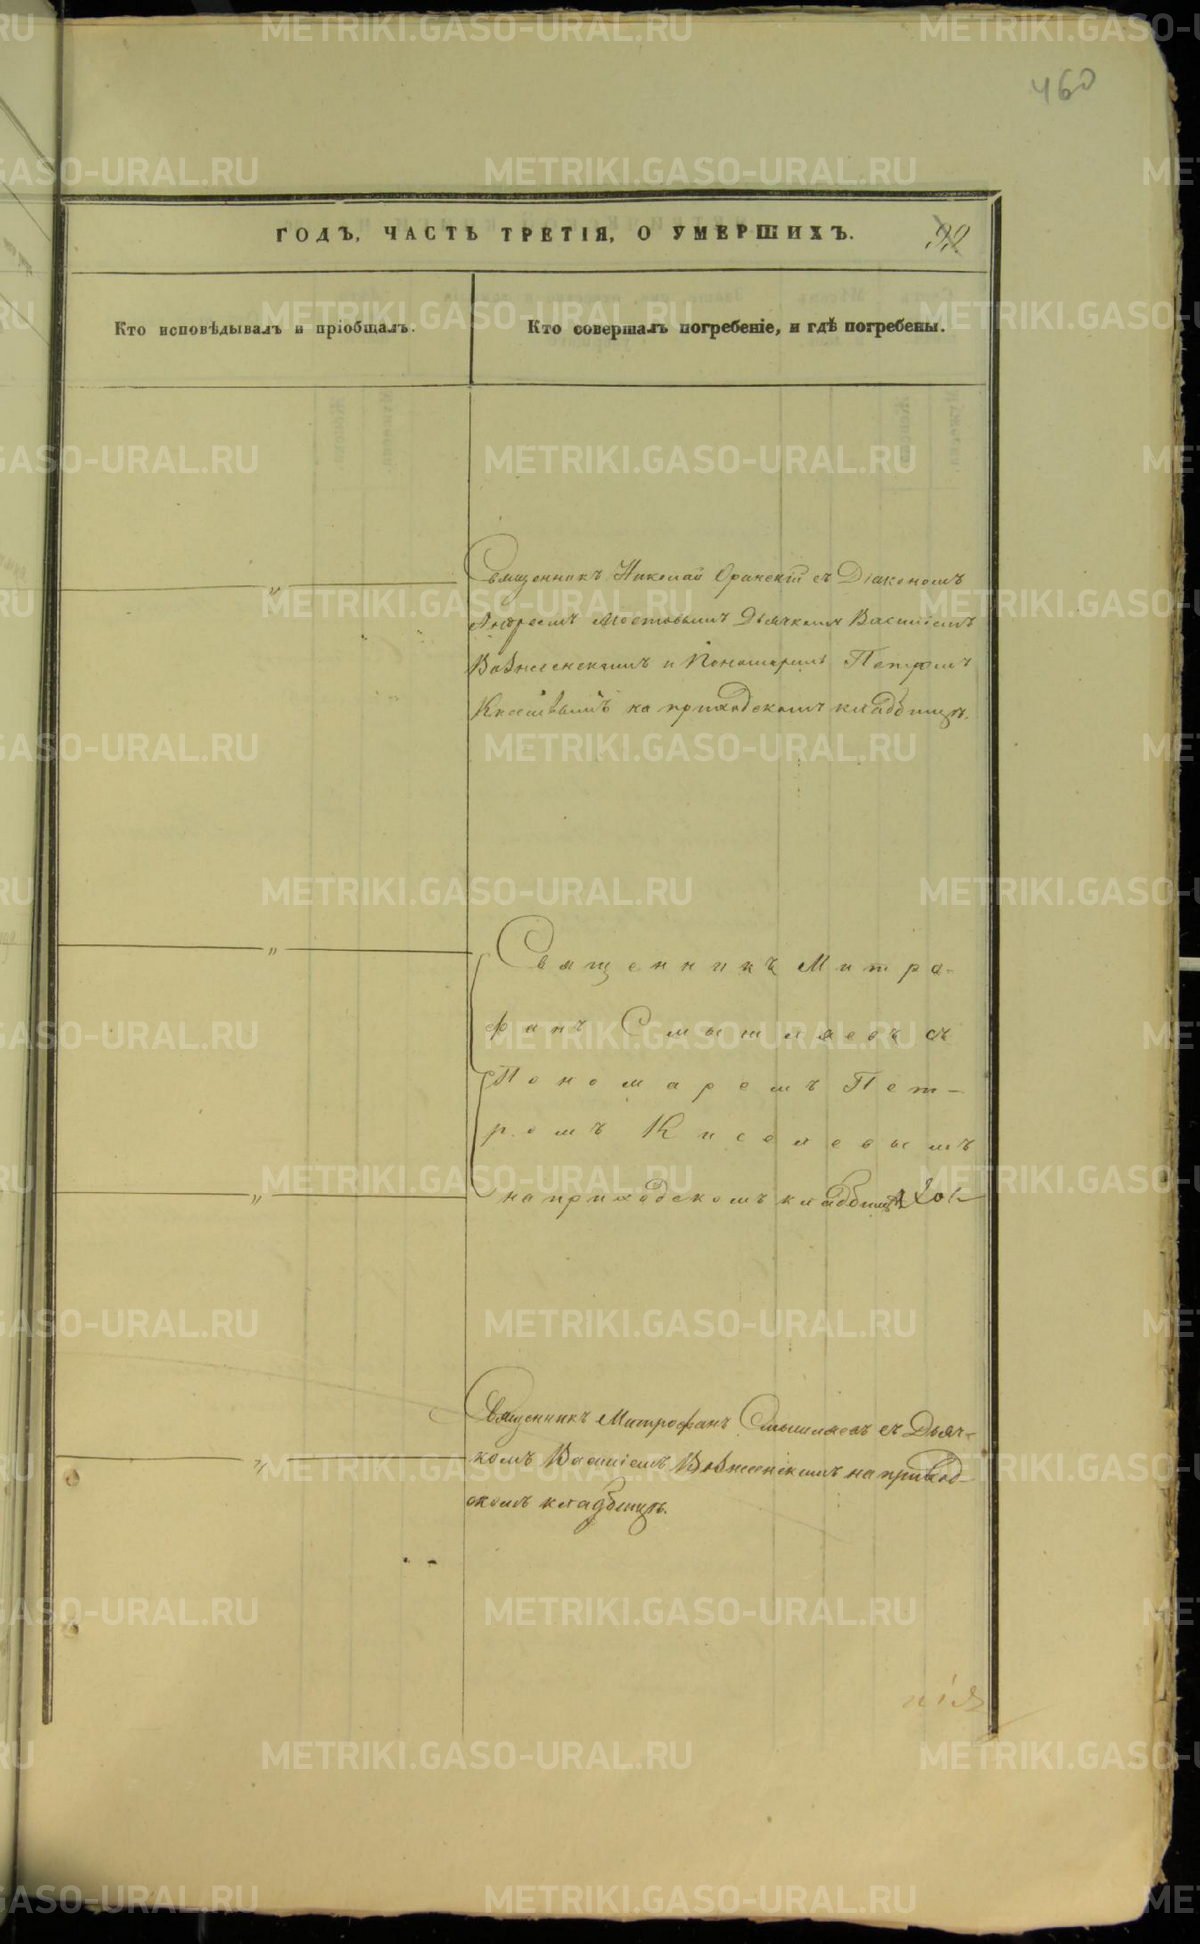 460
ГОДЪ, ЧАСТЬ ТРЕТІЯ, О УМЕРШИХЪ.
Кто исповѣдывалъ и пріобщалъ.
Кто совершалъ погребеніе, и гдѣ погребены.
Священникъ Николай съ Діакономъ
Андреемъ Мостовымъ Дьячкомъ Василіемъ
Вознесенскимъ и Пономаремъ Петромъ
Киселевымъ на приходскомъ кладбищѣ.
Священникъ Митро-
фанъ Смышляевъ съ
Пономаремъ Пет-
ромъ Киселевымъ
на приходскомъ кладбищѣ
Священникъ Митрофанъ Смышляевъ съ Дьяч-
комъ Василіемъ Вознесенскимъ на приход-
скомъ кладбищѣ.
METRIKI.GASO-URAL.RU